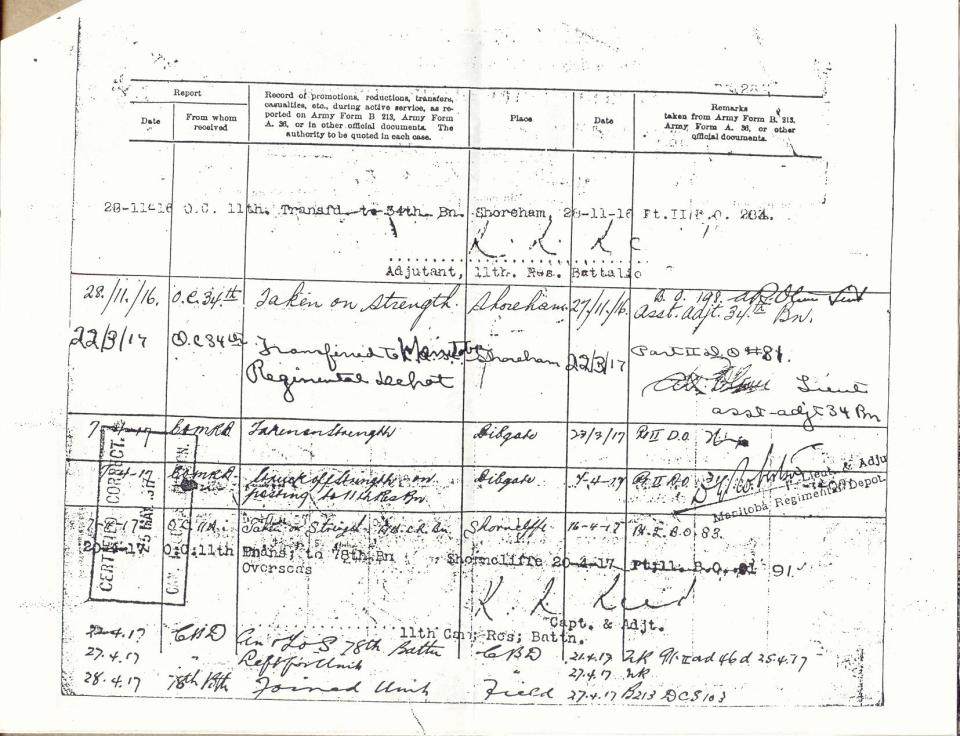 Report
Date
From whom
received
Record of promotions, reductions, transfers,
casualties, etc., during active service, as re-
ported on Army Form B 213, Army Form
A. 36, or in other official documents. The
authority to be quoted in each case.
Place
Date
Remarks
taken from Army Form B. 213,
Army Form A. 36, or other
official documents.
28-11-16 O.C. 11th. Transfd. to 34th. Bn. Shoreham, 28-11-16 Pt.II
Adjutant, 11th. Res. Battalio
28./11./16. O.C. 34.th Taken on strength. Shoreham 27/11/16. B.O. 198.
asst. adjt. 34.th Bn.
22/3/17 O.C 34th Transferred to Manitoba Shoreham 22/3/17 Part II D.O #81.
Regimental Depot
Lieut
asst-adjt 34 Bn
Taken on Strength Dibgate 23/3/17 Pt II D.O.
4-17 Struck off Strength on Dibgate 7-4-17 Pt II D.O
posting to 11th Res Bn.
Lieut. & Adju
Manitoba Regimental Depot
O.C. 11th Taken on Strength Shorncliffe 16-4-17 Pt. 2. D.O. 83.
20-4-17 O.C. 11th to 78th Bn Shorncliffe 20-4-17 Pt.II. 91
Overseas
Capt. & Adjt.
11th Can; Res; Battn.
CERTIFIED CORRECT.
25 MAY
22.4.17 CBD 78th Battn CBD 21.4.17 25.4.17
27.4.17 " Left for Unit 27.4.17
28.4.17 78th Bttn Joined Unit Field 27.4.17 B213 DCS103